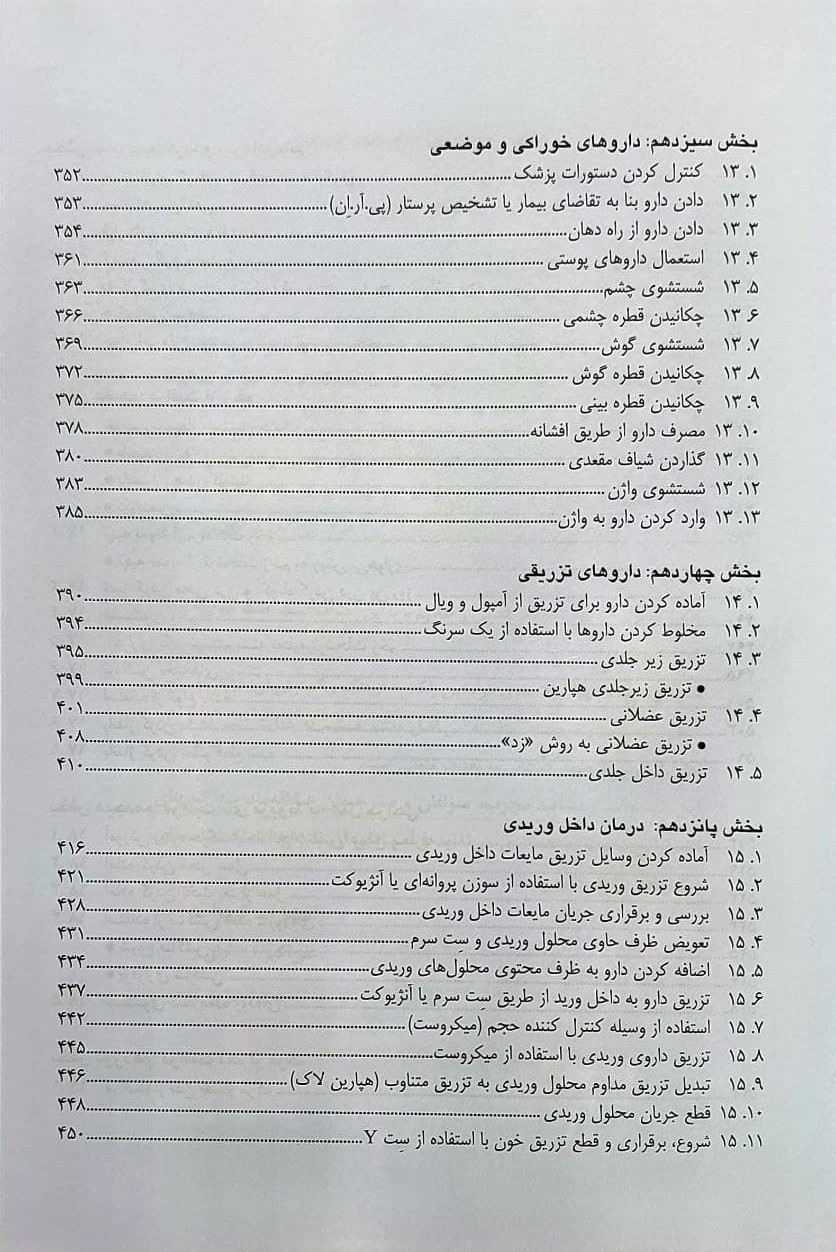 بخش سیزدهم: داروهای خوراکی و موضعی
۱۳.۱ کنترل کردن دستورات پزشک ........ ۳۵۲
۱۳.۲ دادن دارو بنا به تقاضای بیمار یا تشخیص پرستار (پی.آر.اِن) ........ ۳۵۳
۱۳.۳ دادن دارو از راه دهان ........ ۳۵۴
۱۳.۴ استعمال داروهای پوستی ........ ۳۶۱
۱۳.۵ شستشوی چشم ........ ۳۶۳
۱۳.۶ چکانیدن قطره چشمی ........ ۳۶۶
۱۳.۷ شستشوی گوش ........ ۳۶۹
۱۳.۸ چکانیدن قطره گوش ........ ۳۷۲
۱۳.۹ چکانیدن قطره بینی ........ ۳۷۵
۱۳.۱۰ مصرف دارو از طریق افشانه ........ ۳۷۸
۱۳.۱۱ گذاردن شیاف مقعدی ........ ۳۸۰
۱۳.۱۲ شستشوی واژن ........ ۳۸۳
۱۳.۱۳ وارد کردن دارو به واژن ........ ۳۸۵
بخش چهاردهم: داروهای تزریقی
۱۴.۱ آماده کردن دارو برای تزریق از آمپول و ویال ........ ۳۹۰
۱۴.۲ مخلوط کردن داروها با استفاده از یک سرنگ ........ ۳۹۴
۱۴.۳ تزریق زیر جلدی ........ ۳۹۵
• تزریق زیرجلدی هپارین ........ ۳۹۹
۱۴.۴ تزریق عضلانی ........ ۴۰۱
• تزریق عضلانی به روش «زد» ........ ۴۰۸
۱۴.۵ تزریق داخل جلدی ........ ۴۱۰
بخش پانزدهم: درمان داخل وریدی
۱۵.۱ آماده کردن وسایل تزریق مایعات داخل وریدی ........ ۴۱۶
۱۵.۲ شروع تزریق وریدی با استفاده از سوزن پروانه‌ای یا آنژیوکت ........ ۴۲۱
۱۵.۳ بررسی و برقراری جریان مایعات داخل وریدی ........ ۴۲۸
۱۵.۴ تعویض ظرف حاوی محلول وریدی و سِت سرم ........ ۴۳۱
۱۵.۵ اضافه کردن دارو به ظرف محتوی محلول‌های وریدی ........ ۴۳۴
۱۵.۶ تزریق دارو به داخل ورید از طریق سِت سرم یا آنژیوکت ........ ۴۳۷
۱۵.۷ استفاده از وسیله کنترل کننده حجم (میکروست) ........ ۴۴۲
۱۵.۸ تزریق داروی وریدی با استفاده از میکروست ........ ۴۴۵
۱۵.۹ تبدیل تزریق مداوم محلول وریدی به تزریق متناوب (هپارین لاک) ........ ۴۴۶
۱۵.۱۰ قطع جریان محلول وریدی ........ ۴۴۸
۱۵.۱۱ شروع، برقراری و قطع تزریق خون با استفاده از سِت Y ........ ۴۵۰